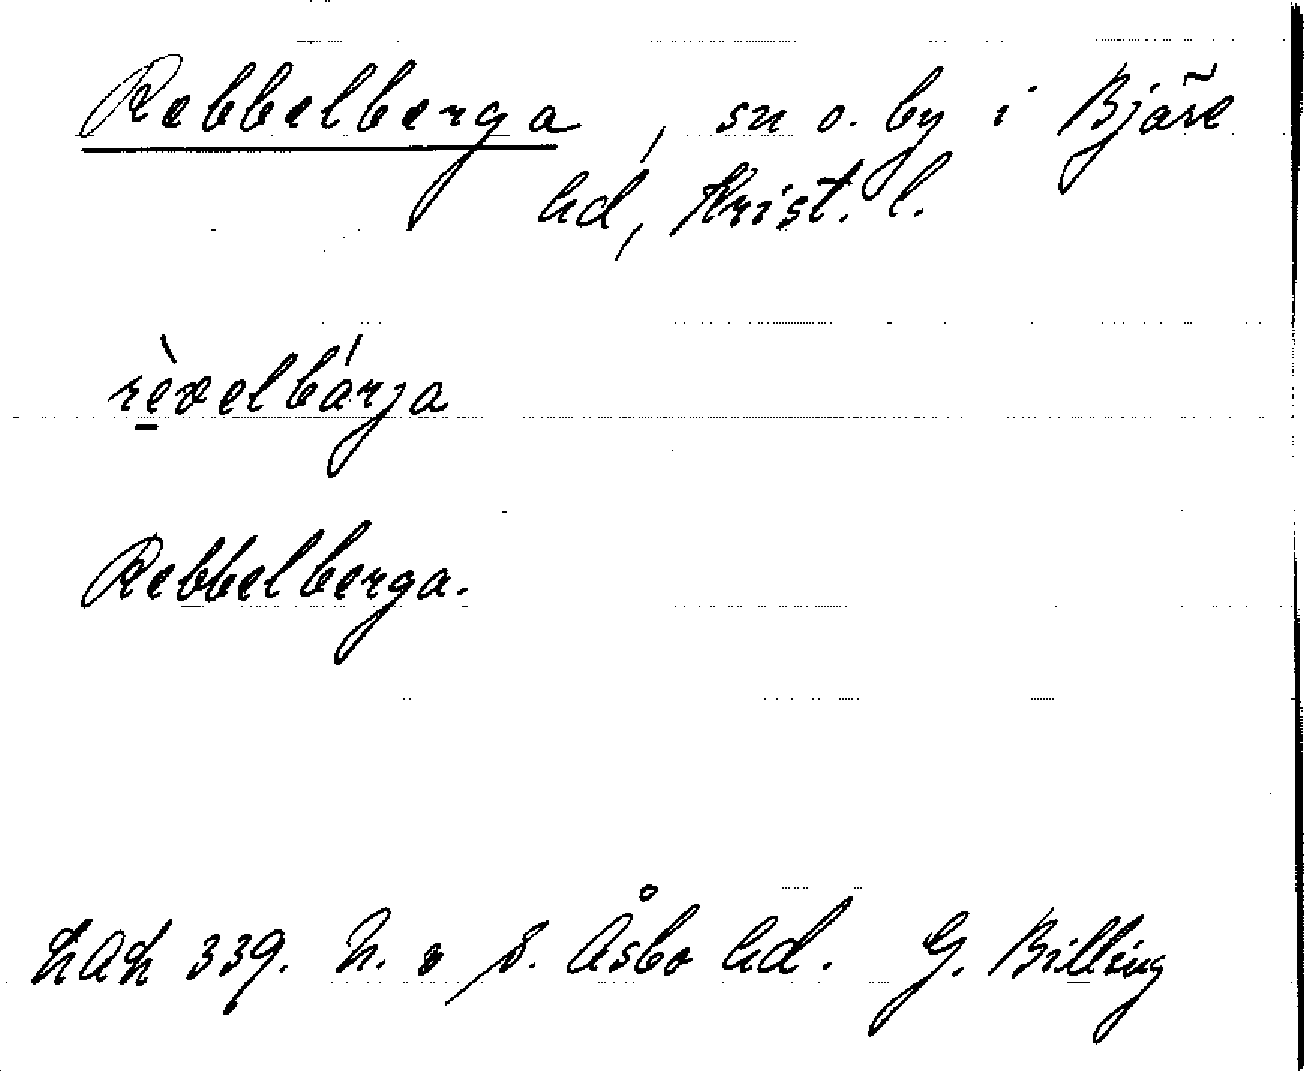 Rebbelberga, sn o. by i Bjäre
hd, Krist. l.
rèvelbárja
Rebbelberga.
LAL 339. N. o S. Åsbo hd. G. Billing